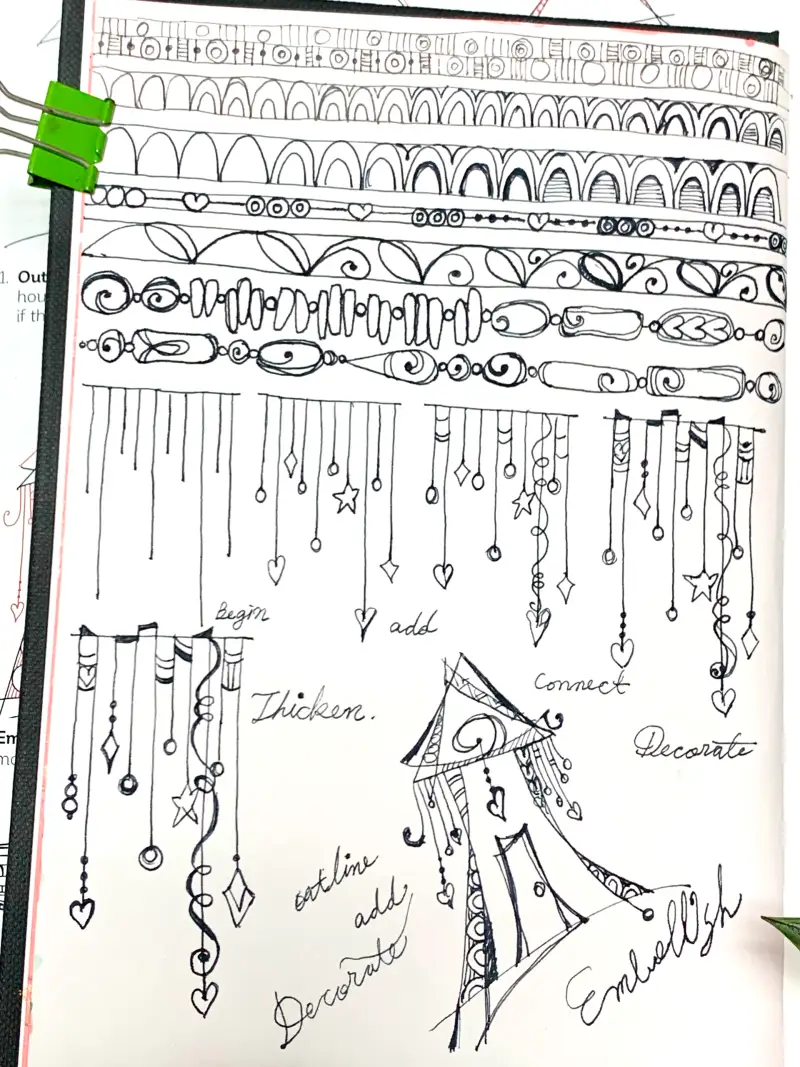 1. Out
hou
if th
Begin
add
Connect
Thicken.
Decorate
Em
outline
add
Decorate
Embellish